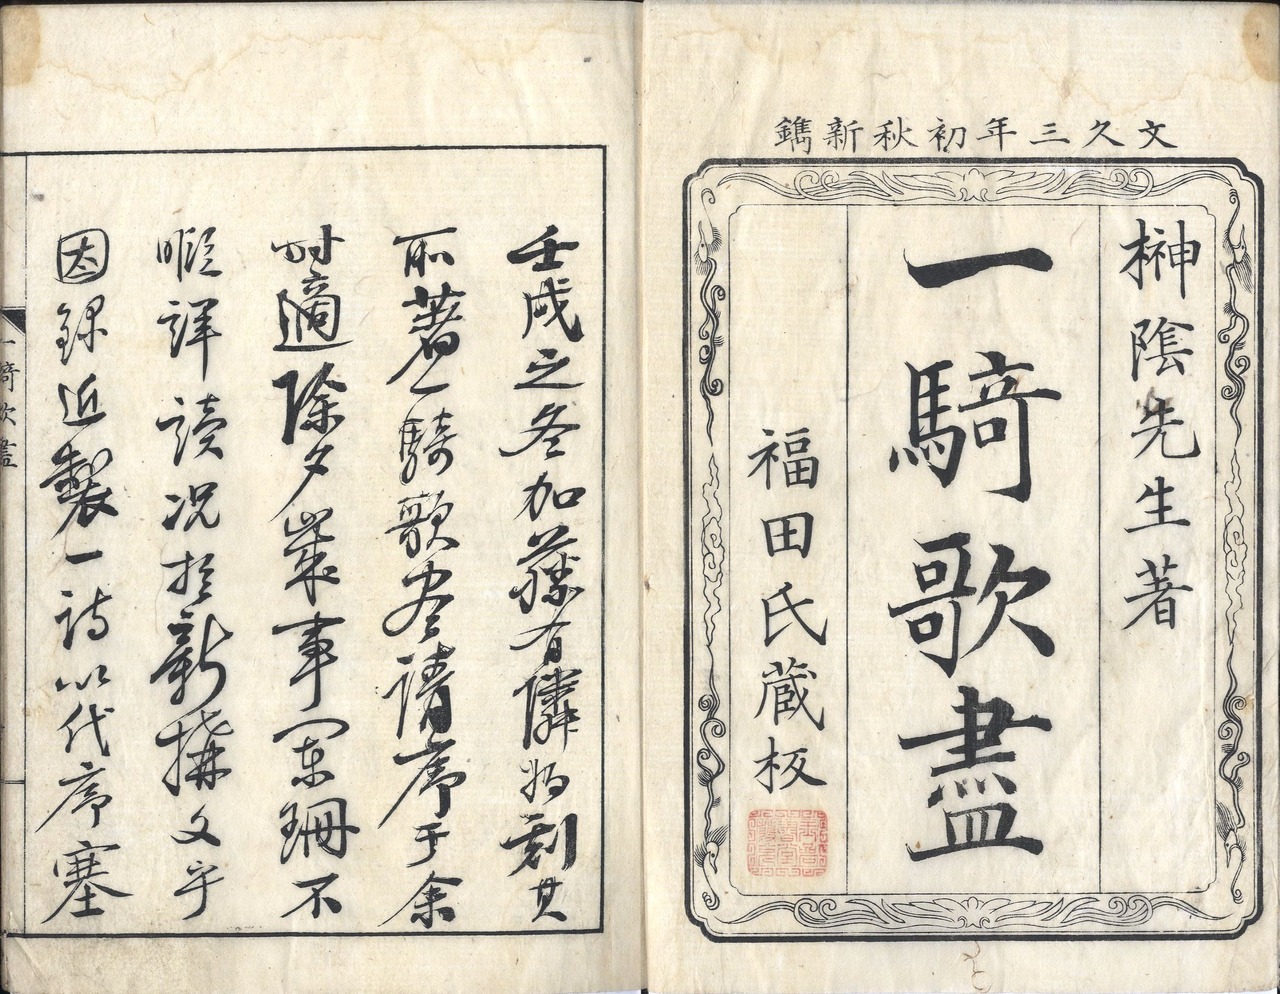 文久三年初秋新鐫
榊陰先生著
一騎歌盡
福田氏蔵板
壬戌之冬加藤有隣将刻其
所著一騎歌尽請序于余
時適除夕歳事闌珊不
暇詳読況於新搆文乎
因録近製一詩以代序塞
一騎歌盡